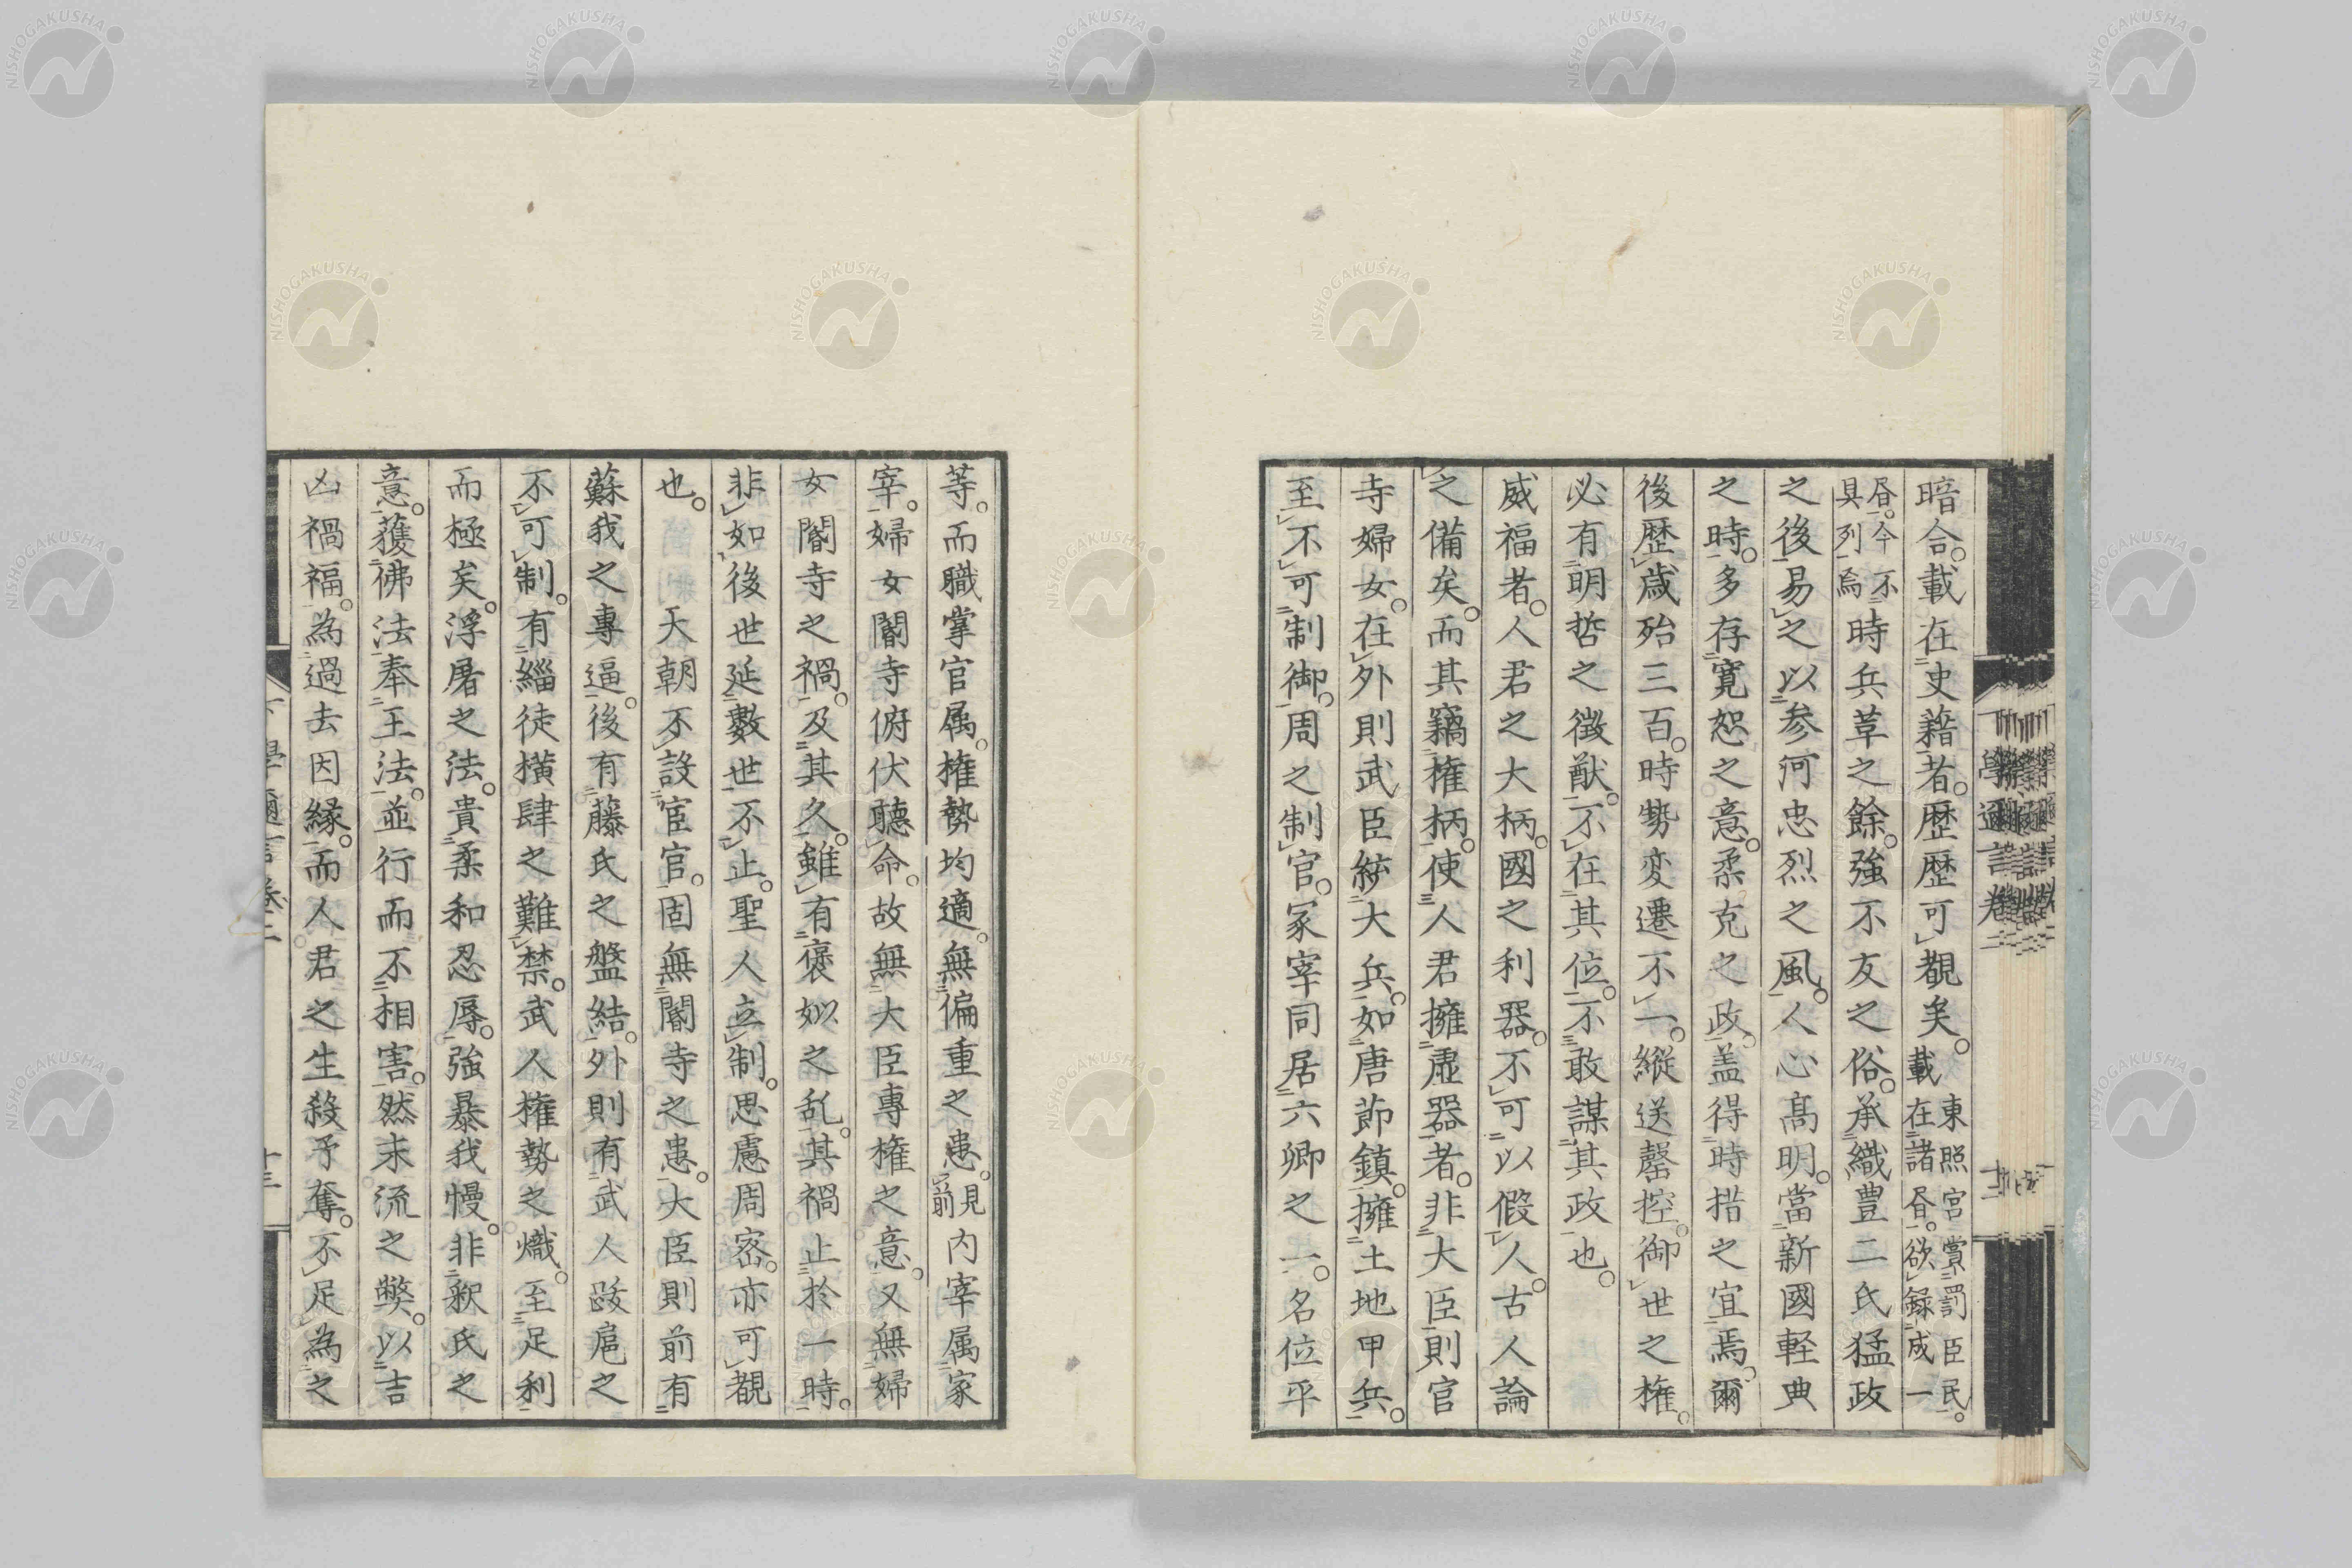 暗合。載在史藉者。歷歷可觀矣。東照宮賞罰臣民。載在諸昏。欲録成一
昏。今不具列焉時兵革之餘。強不友之俗。承織豊二氏猛政
之後易之以参河忠烈之風。人心髙明。當新國軽典
之時。多存寛恕之意。柔克之政。盖得時措之宜焉。爾
後歷歳殆三百。時勢変遷不一。縦送罄控。御世之権。
必有明哲之徴猷。不在其位。不敢謀其政也。
威福者。人君之大柄。國之利器。不可以假人。古人論
之備矣。而其竊権柄。使人君擁虚器者。非大臣則官
寺婦女。在外則武臣統大兵。如唐節鎮。擁土地甲兵。
至不可制御。周之制官。冢宰同居六卿之一。名位平
學適言卷二
等。而職掌官属。権勢均適。無偏重之患。見前内宰属冢
宰。婦女閽寺俯伏聽命。故無大臣專権之意。又無婦
女閽寺之禍。及其久。雖有褒姒之乱。其禍止於一時。
非如後世延數世不止。聖人立制。思慮周宻。亦可觀
也。天朝不設宦官。固無閽寺之患。大臣則前有
蘇我之專逼。後有藤氏之盤結。外則有武人跋扈之
不可制。有緇徒横肆之難禁。武人権勢之熾。至足利
而極矣。浮屠之法。貴柔和忍辱。強暴我慢。非釈氏之
意。蔓佛法奉王法。並行而不相害。然末流之獘。以吉
凶禍福。為過去因縁。而人君之生殺予奪。不足為之
學適言卷二
十三
NISHOGAKUSHA